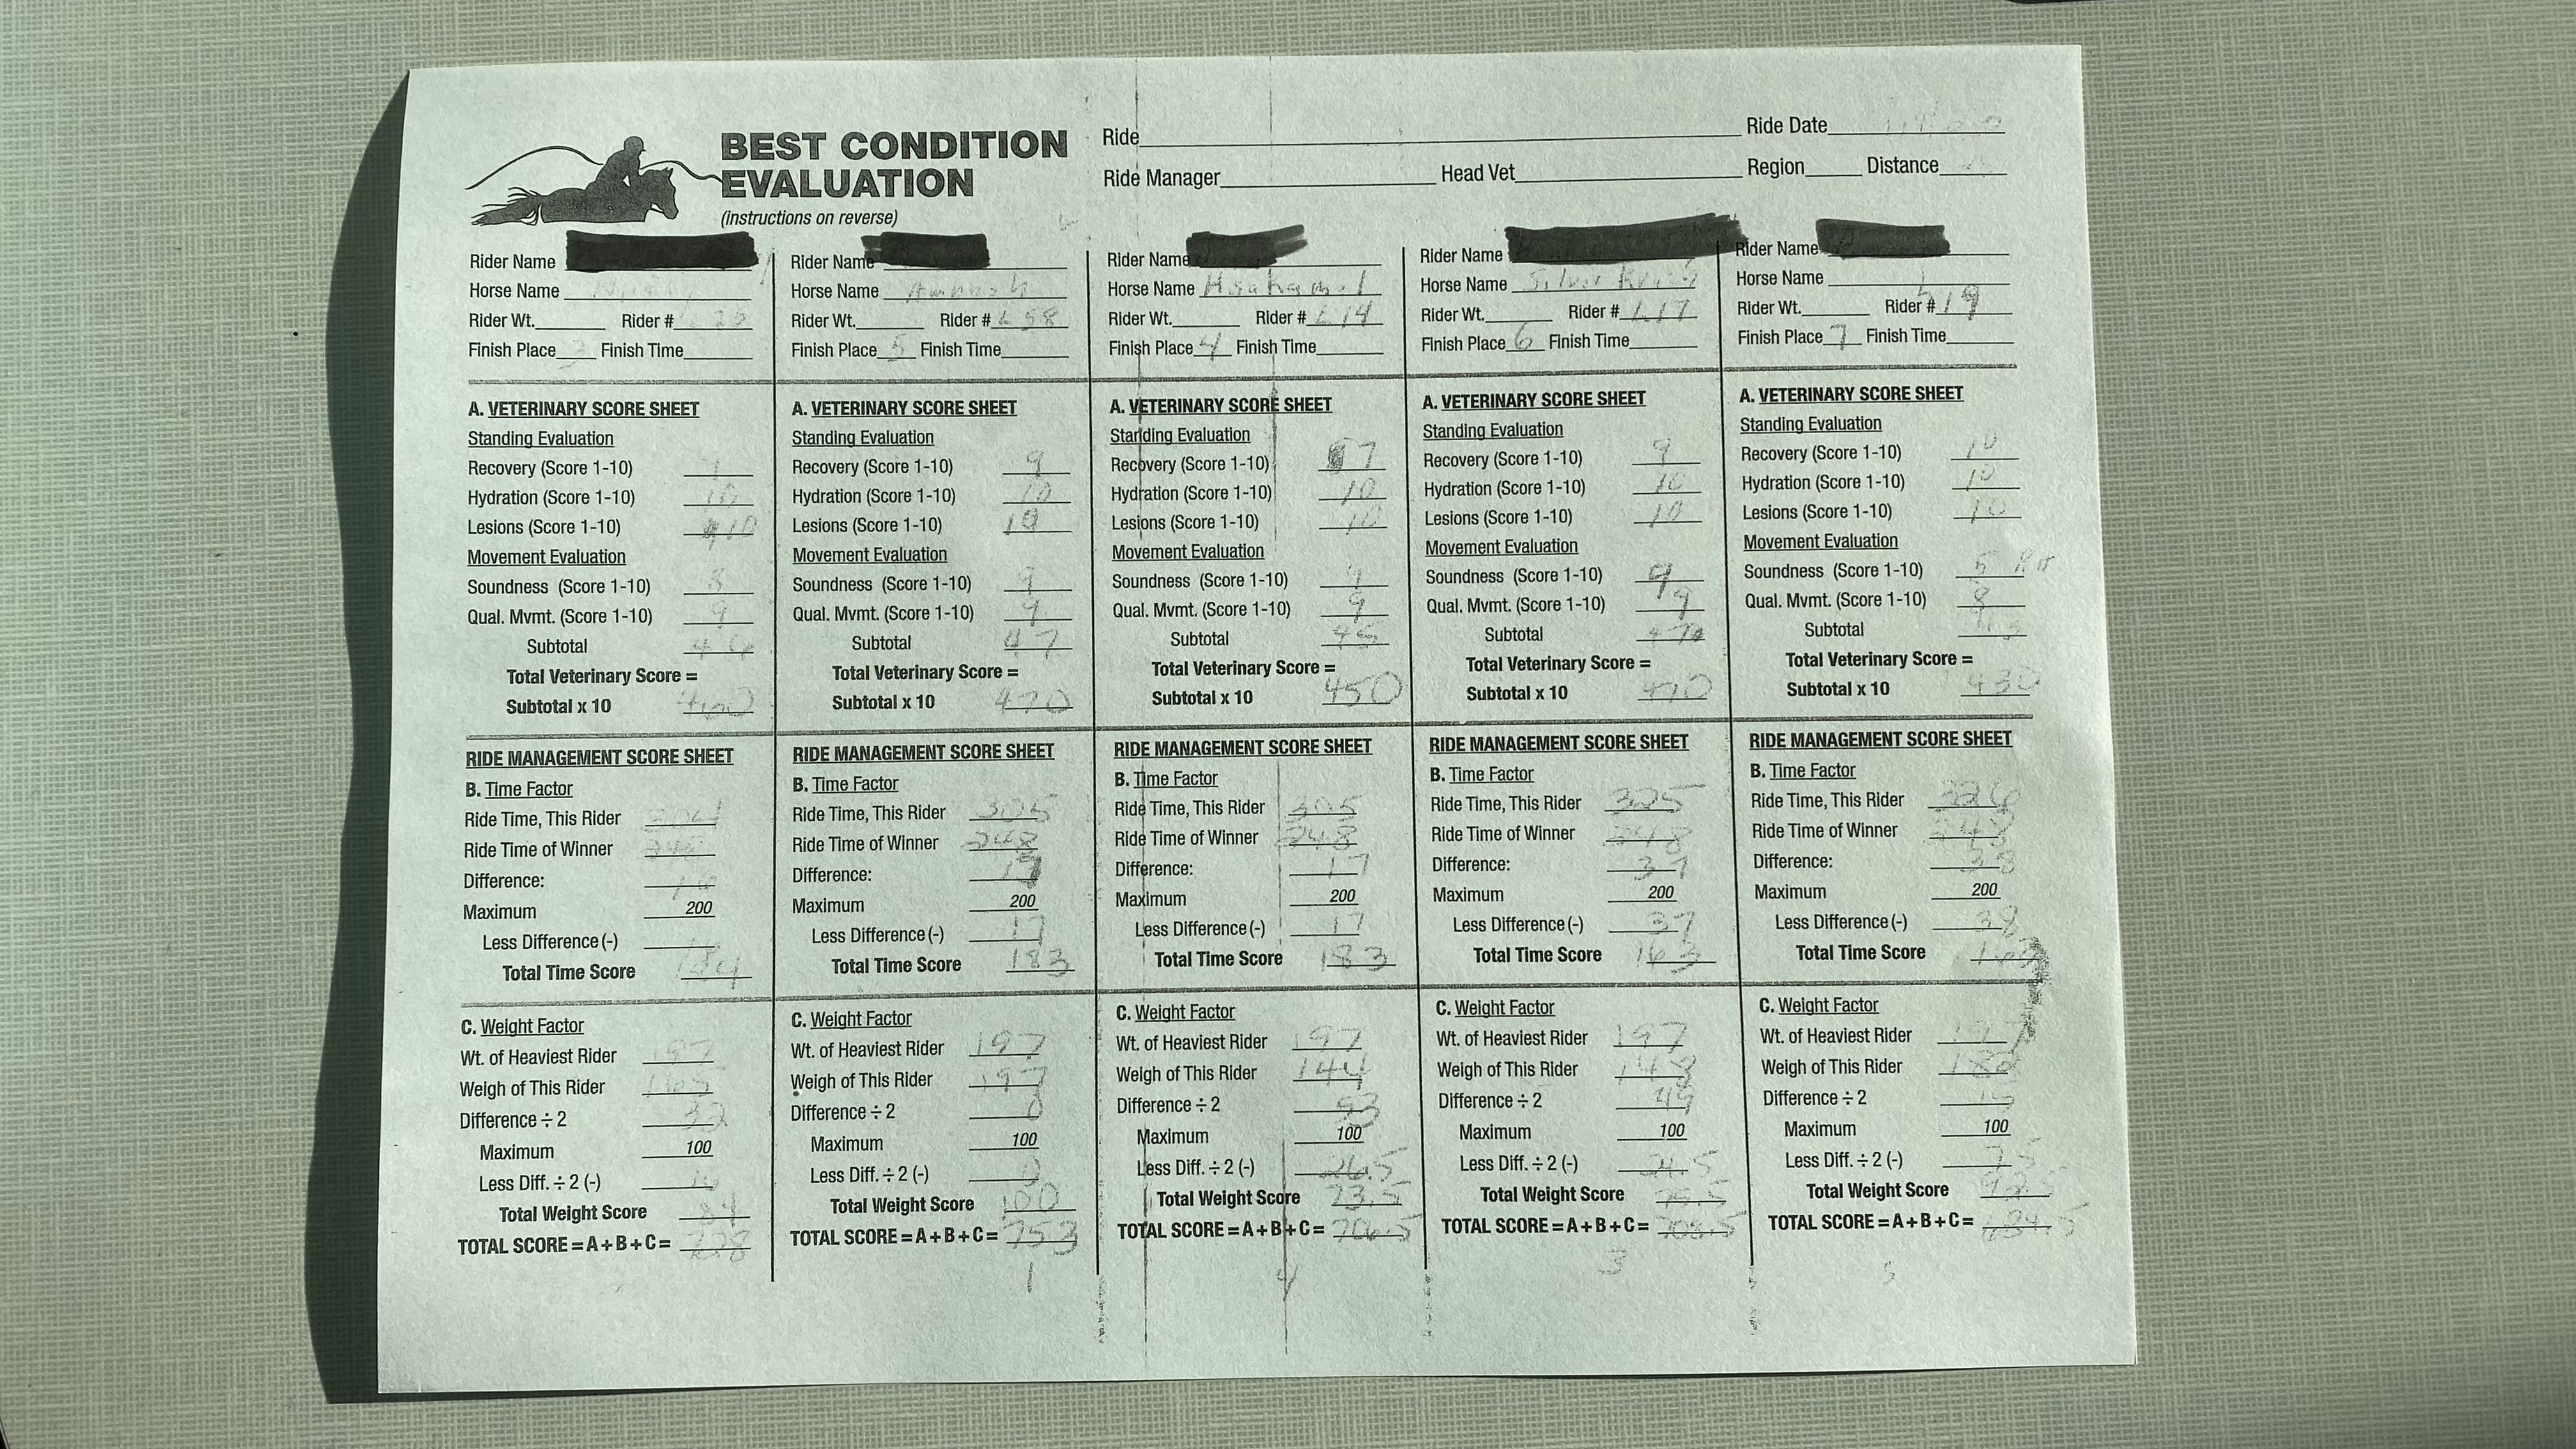 BEST CONDITION
EVALUATION
(instructions on reverse)
Ride
Ride Date
Ride Manager
Head Vet
Region
Distance
Rider Name
Horse Name
Rider Wt. Rider #
Finish Place Finish Time
A. VETERINARY SCORE SHEET
Standing Evaluation
Recovery (Score 1-10)
Hydration (Score 1-10) 10
Lesions (Score 1-10) 10
Movement Evaluation
Soundness (Score 1-10) 8
Qual. Mvmt. (Score 1-10) 9
Subtotal
Total Veterinary Score =
Subtotal x 10
RIDE MANAGEMENT SCORE SHEET
B. Time Factor
Ride Time, This Rider
Ride Time of Winner
Difference:
Maximum 200
Less Difference (-)
Total Time Score
C. Weight Factor
Wt. of Heaviest Rider 197
Weigh of This Rider
Difference ÷ 2 32
Maximum 100
Less Diff. ÷ 2 (-)
Total Weight Score 84
TOTAL SCORE = A + B + C =
Rider Name
Horse Name Hannah
Rider Wt. Rider # L 58
Finish Place 5 Finish Time
A. VETERINARY SCORE SHEET
Standing Evaluation
Recovery (Score 1-10) 9
Hydration (Score 1-10) 10
Lesions (Score 1-10) 10
Movement Evaluation
Soundness (Score 1-10) 9
Qual. Mvmt. (Score 1-10) 9
Subtotal 47
Total Veterinary Score =
Subtotal x 10 470
RIDE MANAGEMENT SCORE SHEET
B. Time Factor
Ride Time, This Rider 305
Ride Time of Winner 248
Difference: 17
Maximum 200
Less Difference (-) 17
Total Time Score 183
C. Weight Factor
Wt. of Heaviest Rider 197
Weigh of This Rider 197
Difference ÷ 2 0
Maximum 100
Less Diff. ÷ 2 (-) 0
Total Weight Score 100
TOTAL SCORE = A + B + C = 753
1
Rider Name
Horse Name
Rider Wt. Rider # L 14
Finish Place 4 Finish Time
A. VETERINARY SCORE SHEET
Standing Evaluation
Recovery (Score 1-10) 7
Hydration (Score 1-10) 10
Lesions (Score 1-10) 10
Movement Evaluation
Soundness (Score 1-10) 9
Qual. Mvmt. (Score 1-10) 9
Subtotal 45
Total Veterinary Score =
Subtotal x 10 450
RIDE MANAGEMENT SCORE SHEET
B. Time Factor
Ride Time, This Rider 305
Ride Time of Winner 248
Difference: 17
Maximum 200
Less Difference (-) 17
Total Time Score 183
C. Weight Factor
Wt. of Heaviest Rider 197
Weigh of This Rider 144
Difference ÷ 2 53
Maximum 100
Less Diff. ÷ 2 (-) 26.5
Total Weight Score 73.5
TOTAL SCORE = A + B + C = 706.5
4
Rider Name
Horse Name
Rider Wt. Rider # L17
Finish Place 6 Finish Time
A. VETERINARY SCORE SHEET
Standing Evaluation
Recovery (Score 1-10) 9
Hydration (Score 1-10) 10
Lesions (Score 1-10) 10
Movement Evaluation
Soundness (Score 1-10) 9
Qual. Mvmt. (Score 1-10) 9
Subtotal 47
Total Veterinary Score =
Subtotal x 10 470
RIDE MANAGEMENT SCORE SHEET
B. Time Factor
Ride Time, This Rider 325
Ride Time of Winner 248
Difference: 37
Maximum 200
Less Difference (-) 37
Total Time Score 163
C. Weight Factor
Wt. of Heaviest Rider 197
Weigh of This Rider 148
Difference ÷ 2 49
Maximum 100
Less Diff. ÷ 2 (-) 24.5
Total Weight Score 75.5
TOTAL SCORE = A + B + C = 708.5
3
Rider Name
Horse Name
Rider Wt. Rider # L19
Finish Place 7 Finish Time
A. VETERINARY SCORE SHEET
Standing Evaluation
Recovery (Score 1-10) 10
Hydration (Score 1-10) 10
Lesions (Score 1-10) 10
Movement Evaluation
Soundness (Score 1-10) 5
Qual. Mvmt. (Score 1-10) 8
Subtotal
Total Veterinary Score =
Subtotal x 10 430
RIDE MANAGEMENT SCORE SHEET
B. Time Factor
Ride Time, This Rider 326
Ride Time of Winner 248
Difference: 38
Maximum 200
Less Difference (-) 38
Total Time Score
C. Weight Factor
Wt. of Heaviest Rider 197
Weigh of This Rider 182
Difference ÷ 2 15
Maximum 100
Less Diff. ÷ 2 (-) 7.5
Total Weight Score 92.5
TOTAL SCORE = A + B + C = 684.5
5